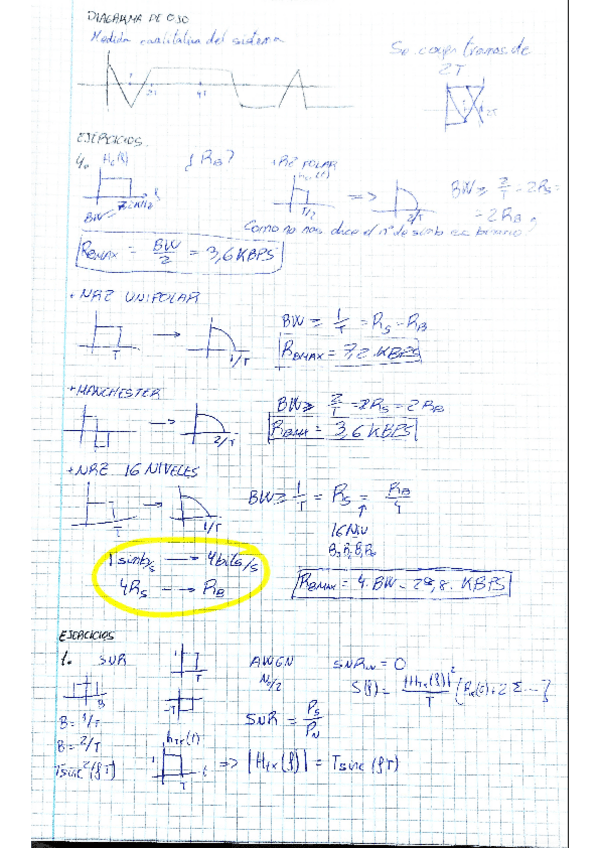 DIAGRAMA DE OJO
Medida cualitativa del sistema
Se cogen tramos de
2T
2T
EJERCICIOS
4. Hc(f)
¿RB?
+RZ POLAR
T/2
=>
2/T
BW ≥ 2/T = 2RS =
= 2RB
Como no nos dice el nº de simb es binario
RBMAX = BW/2 = 3,6 KBPS
+ NRZ UNIPOLAR
T
1/T
BW ≥ 1/T = RS = RB
RBMAX = 7,2 KBPS
+MANCHESTER
2/T
BW ≥ 2/T = 2RS = 2RB
RBMAX = 3,6 KBPS
+NRZ 16 NIVELES
T
1/T
BW ≥ 1/T = RS = RB/4
16 Niv
1 simb/s → 4 bits/s
4RS → RB
RBMAX = 4·BW = 28,8 KBPS
EJERCICIOS
1. SNR
T
AWGN
N0/2
B
-T
B = 1/T
B = 2/T
Tsinc²(fT)
SNR = PS/PN
hTx(t)
T
t
=> |HTx(f)| = Tsinc(fT)